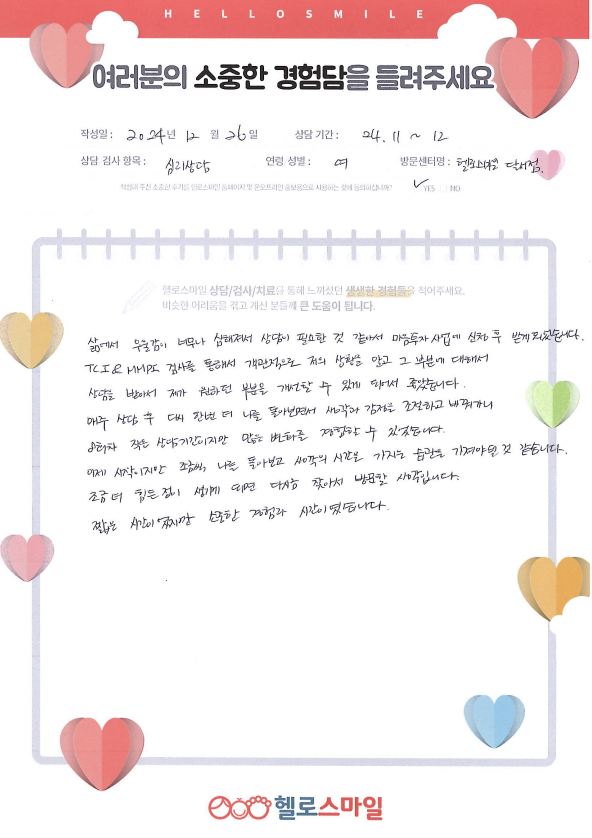 HELLOSMILE
여러분의 소중한 경험담을 들려주세요
작성일: 2024년 12월 26일 상담 기간: 24. 11 ~ 12
상담 검사 항목: 심리상담 연령 성별: 여 방문센터명: 헬로스마일 단서점.
작성해 주신 소중한 수기를 헬로스마일 홈페이지 및 온오프라인 홍보용으로 사용하는 것에 동의하십니까? ✓ YES NO
헬로스마일 상담/검사/치료를 통해 느끼셨던 생생한 경험들을 적어주세요.
비슷한 어려움을 겪고 계신 분들께 큰 도움이 됩니다.
삶에서 우울감이 너무나 심해져서 상담이 필요한 것 같아서 마음투자사업에 신청 후 받게 되었습니다.
TCI & MMPI 검사를 통해서 객관적으로 저의 상황을 알고 그 부분에 대해서
상담을 받아서 제가 원하던 부분을 개선할 수 있게 되서 좋았습니다.
매주 상담 후 다시 한번 더 나를 돌아보면서 생각과 감정을 조절하고 바꿔가니
8회차 작은 상담기간이지만 많은 변화를 경험할 수 있었습니다.
이제 시작이지만 조금씩, 나를 돌아보고 생각의 시간을 가지는 습관을 가져야될 것 같습니다.
조금 더 힘든 점이 생기게 되면 다시금 찾아서 방문할 생각입니다.
짧은 시간이었지만 소중한 경험과 시간이였습니다.
헬로스마일